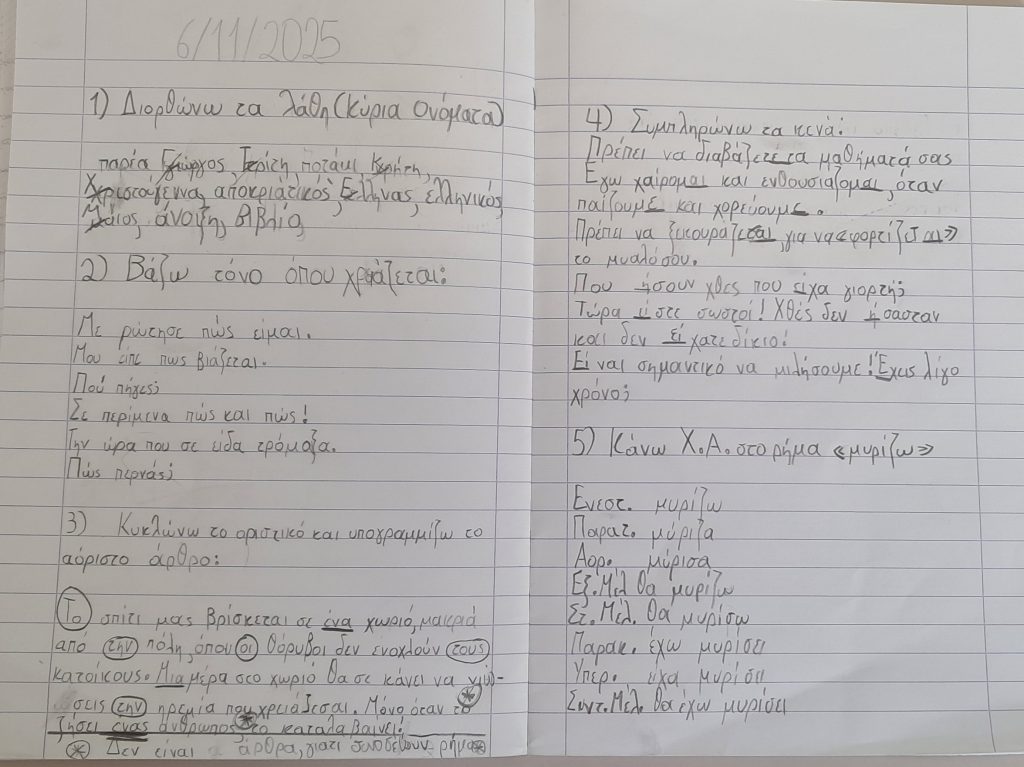 6/11/2025
1) Διορθώνω τα λάθη (Κύρια Ονόματα)
παρέα Γιώργος, Τρίτη, ποτάμι, Κρήτη,
Χριστούγεννα, αποκριάτικος, Έλληνας, ελληνικός,
Μάιος, άνοιξη, βιβλίο
2) Βάζω τόνο όπου χρειάζεται:
Με ρώτησε πώς είμαι.
Μου είπε πως βιάζεται.
Πού πήγες;
Σε περίμενα πώς και πώς!
Την ώρα που σε είδα τρόμαξα.
Πώς περνάς;
3) Κυκλώνω το οριστικό και υπογραμμίζω το
αόριστο άρθρο:
Το σπίτι μας βρίσκεται σε ένα χωριό, μακριά
από την πόλη, όπου οι θόρυβοι δεν ενοχλούν τους
κατοίκους. Μια μέρα στο χωριό θα σε κάνει να νιώ-
σεις την ηρεμία που χρειάζεσαι. Μόνο όταν το *
ζήσει ένας άνθρωπος * το καταλαβαίνει!
* Δεν είναι άρθρα, γιατί συνοδεύουν ρήμα *
4) Συμπληρώνω τα κενά:
Πρέπει να διαβάζετε τα μαθήματά σας
Εγώ χαίρομαι και ενθουσιάζομαι, όταν
παίζουμε και χορεύουμε.
Πρέπει να ξεκουράζεσαι, για να «φορτίζεται»
το μυαλό σου.
Που ήσουν χθες που είχα γιορτή;
Τώρα είστε σωστοί! Χθές δεν ήσασταν
και δεν είχατε δίκιο!
Είναι σημαντικό να μιλήσουμε! Έχεις λίγο
χρόνο;
5) Κάνω Χ.Α. στο ρήμα «μυρίζω»
Ενεστ. μυρίζω
Παρατ. μύριζα
Αορ. μύρισα
Εξ. Μέλ θα μυρίζω
Στ. Μέλ. θα μυρίσω
Παρακ. έχω μυρίσει
Υπερ. είχα μυρίσει
Συντ. Μέλ. θα έχω μυρίσει